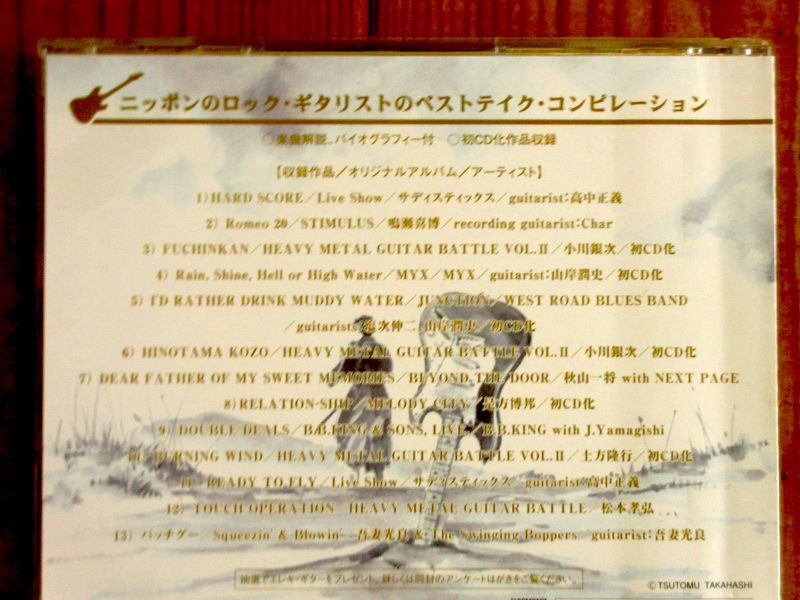 ニッポンのロック・ギタリストのベストテイク・コンピレーション
○楽曲解説。バイオグラフィー付 ○初CD化作品収録
【収録作品／オリジナルアルバム／アーティスト】
1) HARD SCORE／Live Show／サディスティックス／guitarist:高中正義
2) Romeo 20／STIMULUS／鳴瀬喜博／recording guitarist:Char
3) FUCHINKAN／HEAVY METAL GUITAR BATTLE VOL.II／小川銀次／初CD化
4) Rain, Shine, Hell or High Water／MYX／MYX／guitarist:山岸潤史／初CD化
5) I'D RATHER DRINK MUDDY WATER／JUNCTION／WEST ROAD BLUES BAND
／guitarists:塩次伸二、山岸潤史／初CD化
6) HINOTAMA KOZO／HEAVY METAL GUITAR BATTLE VOL.II／小川銀次／初CD化
7) DEAR FATHER OF MY SWEET MEMORIES／BEYOND THE DOOR／秋山一将 with NEXT PAGE
8) RELATION-SHIP／MELODY CITY／是方博邦／初CD化
9) DOUBLE DEALS／B.B.KING & SONS, LIVE／B.B.KING with J.Yamagishi
10) BURNING WIND／HEAVY METAL GUITAR BATTLE VOL.II／土方隆行／初CD化
11) READY TO FLY／Live Show／サディスティックス／guitarist:高中正義
12) TOUCH OPERATION／HEAVY METAL GUITAR BATTLE／松本孝弘
13) バッチグー／Squeezin' & Blowin'／吾妻光良 & The Swinging Boppers／guitarist:吾妻光良
抽選でエレキ・ギターをプレゼント。詳しくは同封のアンケートはがきをご覧ください。
©TSUTOMU TAKAHASHI